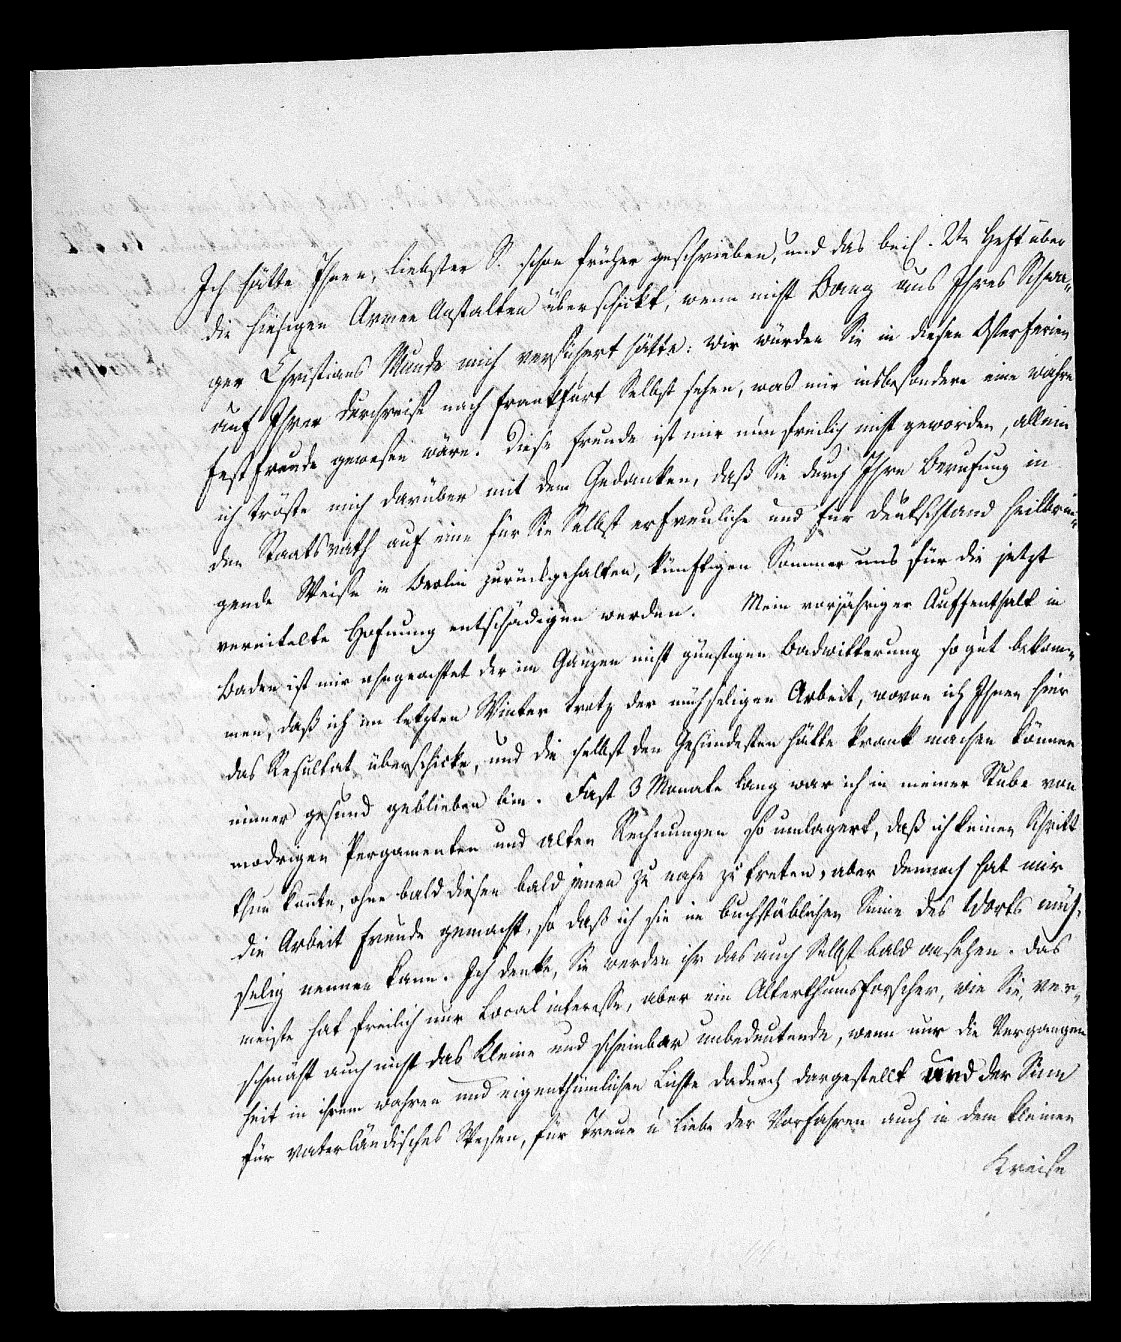 Ich hätte Ihnen, liebster S. schon früher geschrieben, und das beif. Vte Heft über
die hiesigen Armen Anstalten überschickt, wenn nicht Bang aus Ihres Schwa-
ger Christians Munde mich versichert hätte: wir würden Sie in diesen Osterferien
auf Ihrer Durchreise nach Frankfurt Selbst sehen, was mir insbesondere eine wahre
Festfreude gewesen wäre. Diese Freude ist mir nun freilich nicht geworden, allein
ich tröste mich darüber mit dem Gedanken, daß Sie durch Ihre Berufung in
den Staatsrath auf eine für Sie Selbst erfreuliche und für Deutschland heilbrin-
gende Weise in Berlin zurückgehalten, künftigen Sommer uns für die jetzt
vereitelte Hofnung entschädigen werden. Mein vorjähriger Auffenthalt in
Baden ist mir ohngeachtet der im Ganzen nicht günstigen Badwitterung so gut bekom-
men, daß ich im letzten Winter trotz der mühseligen Arbeit, wovon ich Ihnen hier
das Resultat überschicke, und die selbst den Gesundesten hätte krank machen können
immer gesund geblieben bin. Fast 3 Monate lang war ich in meiner Stube von
modrigen Pergamenten und alten Rechnungen so umlagert, daß ich keinen Schritt
thun konnte, ohne bald diesen bald jenen zu nahe zu treten, aber dennoch hat mir
die Arbeit Freude gemacht, so daß ich sie im buchstäblichen Sinne des Worts müh-
selig nennen kann. Ich denke, Sie werden ihr das auch Selbst bald ansehen. Das
meiste hat freilich nur Local interesse, aber ein Alterthumsforscher, wie Sie, ver-
schmäht auch nicht das Kleine und scheinbar unbedeutende, wenn nur die Vergangen
heit in ihrem wahren und eigenthümlichen Lichte dadurch dargestellt und der Sinn
für vaterländisches Wesen, für Treue u Liebe der Vorfahren auch in dem kleinen
Kreise